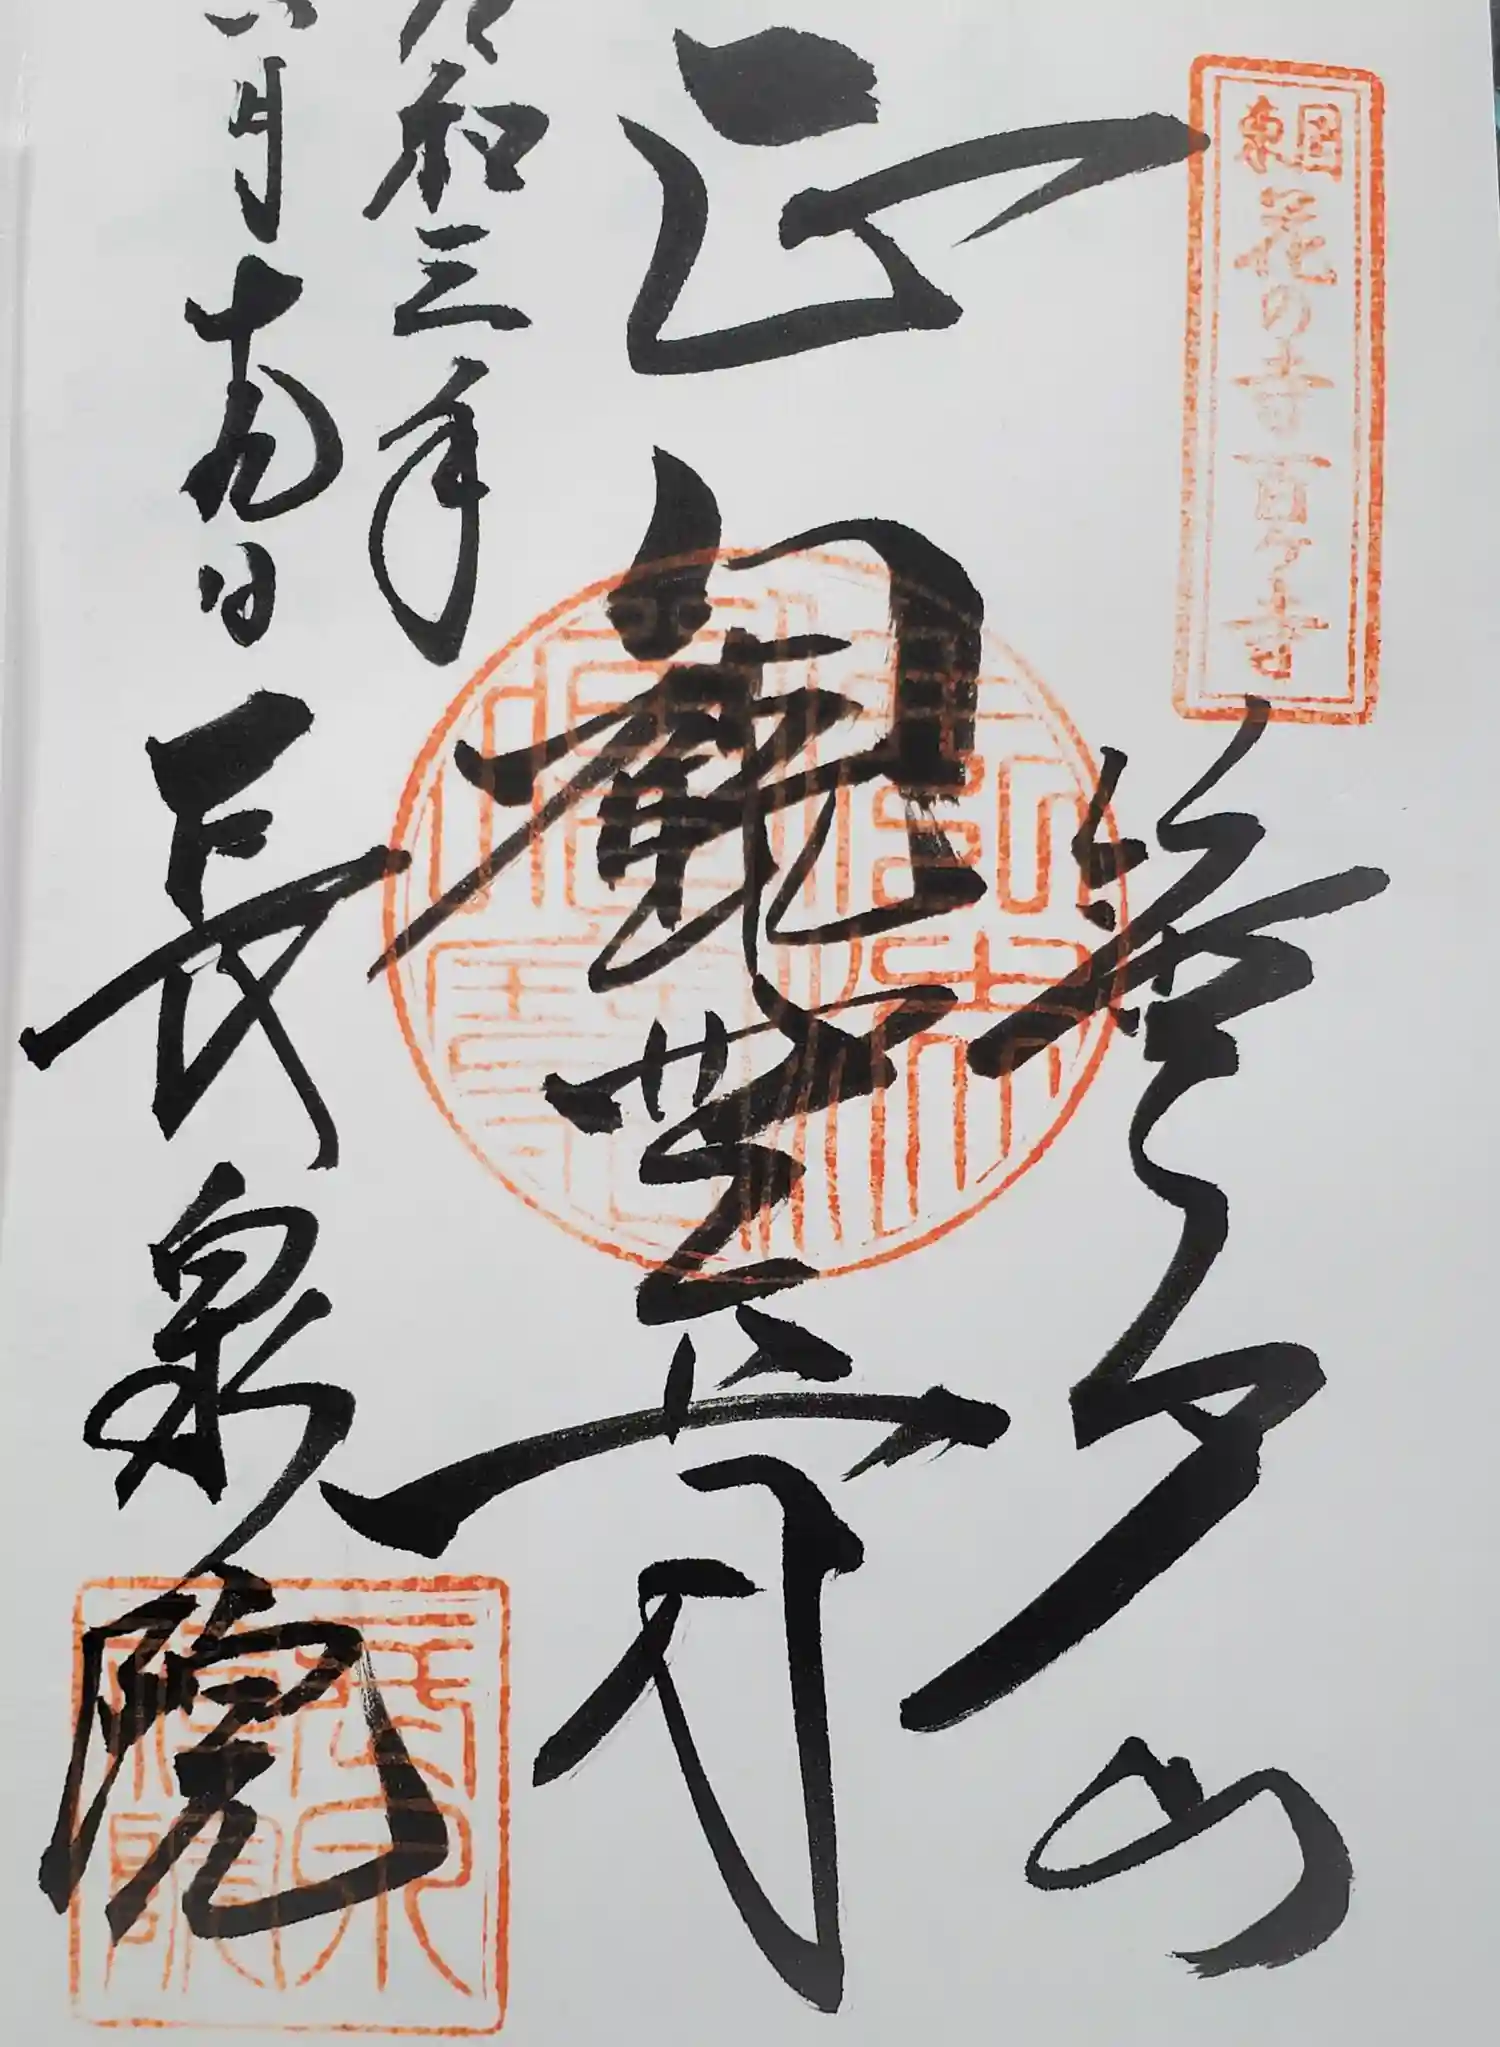 東国花の寺百ヶ寺
笹戸山
正觀世音
令和三年
月十九日
長泉院
長泉
禅院